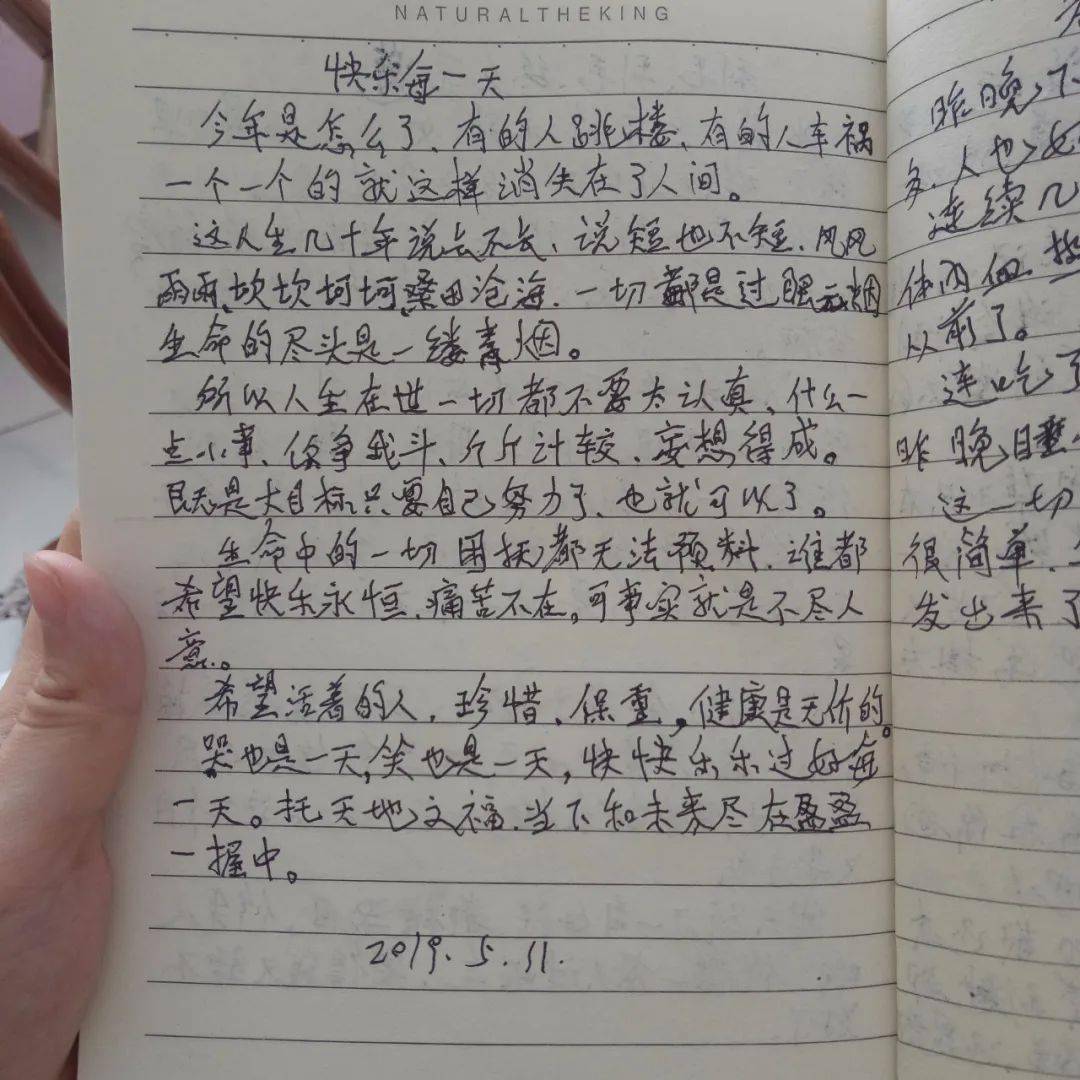 NATURALTHEKING
快乐每一天
今年是怎么了、有的人跳楼、有的人车祸
一个一个的就这样消失在了人间。
这人生几十年说长不长、说短也不短、风风
雨雨、坎坎坷坷、桑田沧海、一切都是过眼云烟
生命的尽头是一缕青烟。
所以人生在世一切都不要太认真、什么一
点小事、你争我斗、斤斤计较、妄想得成。
既是大目标只要自己努力了、也就可以了。
生命中的一切困扰都无法预料、谁都
希望快乐永恒、痛苦不在。可事实就是不尽人
意。
希望活着的人、珍惜、保重,健康是无价的。
哭也是一天,笑也是一天,快快乐乐过好每
一天。托天地之福、当下和未来尽在盈盈
一握中。
2019.5.11.
昨晚下
多、人也
连续几
体内血
从前了。
连吃了
昨晚睡
这一切
很简单、
发出来了